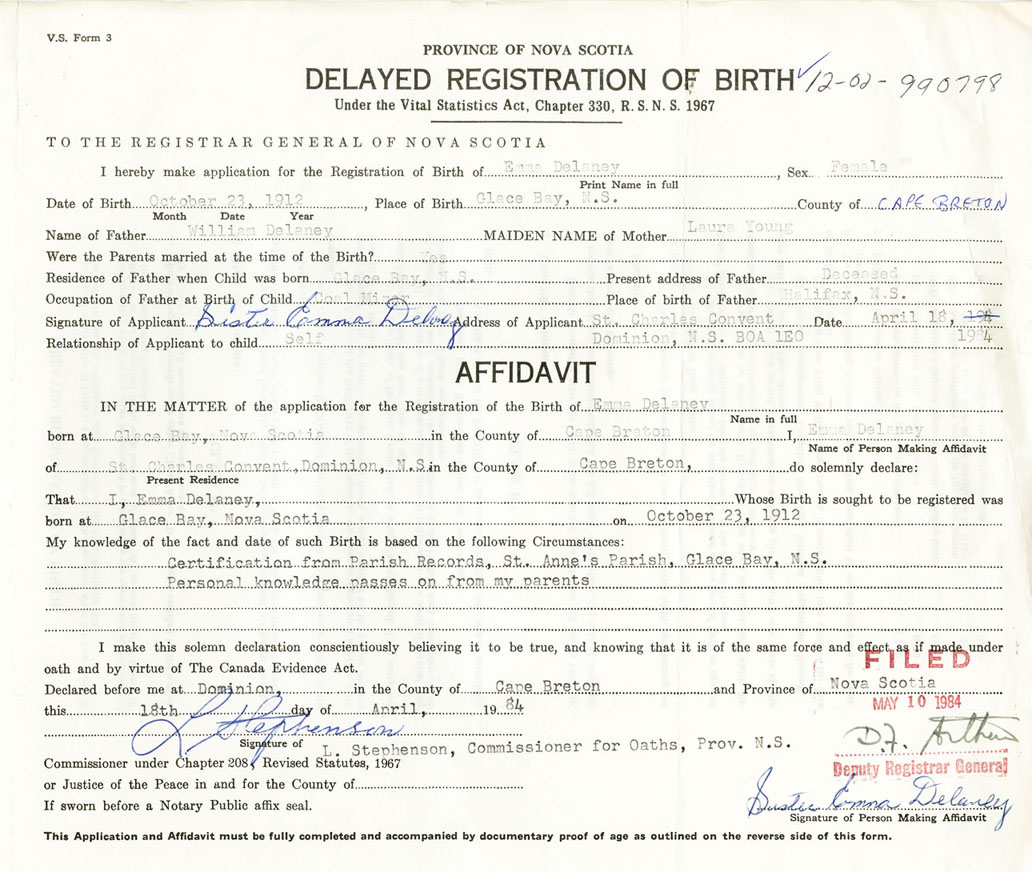 V.S. Form 3
PROVINCE OF NOVA SCOTIA
DELAYED REGISTRATION OF BIRTH ✓ 12-02-990798
Under the Vital Statistics Act, Chapter 330, R.S.N.S. 1967
TO THE REGISTRAR GENERAL OF NOVA SCOTIA
I hereby make application for the Registration of Birth of Emma Delaney, Sex Female
Print Name in full
Date of Birth October 23, 1912, Place of Birth Glace Bay, N.S. County of CAPE BRETON
Month Date Year
Name of Father William Delaney MAIDEN NAME of Mother Laura Young
Were the Parents married at the time of the Birth? Yes
Residence of Father when Child was born Glace Bay, N.S. Present address of Father Deceased
Occupation of Father at Birth of Child Coal Miner Place of birth of Father Halifax, N.S.
Signature of Applicant Sister Emma Delaney Address of Applicant St. Charles Convent Date April 18,
Relationship of Applicant to child Self Dominion, N.S. BOA 1EO 1984
AFFIDAVIT
IN THE MATTER of the application for the Registration of the Birth of Emma Delaney
Name in full
born at Glace Bay, Nova Scotia in the County of Cape Breton I, Emma Delaney
Name of Person Making Affidavit
of St. Charles Convent, Dominion, N.S. in the County of Cape Breton, do solemnly declare:
Present Residence
That I, Emma Delaney, Whose Birth is sought to be registered was
born at Glace Bay, Nova Scotia on October 23, 1912
My knowledge of the fact and date of such Birth is based on the following Circumstances:
Certification from Parish Records, St. Anne's Parish, Glace Bay, N.S.
Personal knowledge passes on from my parents
I make this solemn declaration conscientiously believing it to be true, and knowing that it is of the same force and effect as if made under
oath and by virtue of The Canada Evidence Act.
FILED
Declared before me at Dominion, in the County of Cape Breton and Province of Nova Scotia
this 18th day of April, 1984
MAY 10 1984
L Stephenson
Signature of L. Stephenson, Commissioner for Oaths, Prov. N.S.
D.F.
Commissioner under Chapter 208, Revised Statutes, 1967
Deputy Registrar General
or Justice of the Peace in and for the County of
Sister Emma Delaney
If sworn before a Notary Public affix seal.
Signature of Person Making Affidavit
This Application and Affidavit must be fully completed and accompanied by documentary proof of age as outlined on the reverse side of this form.